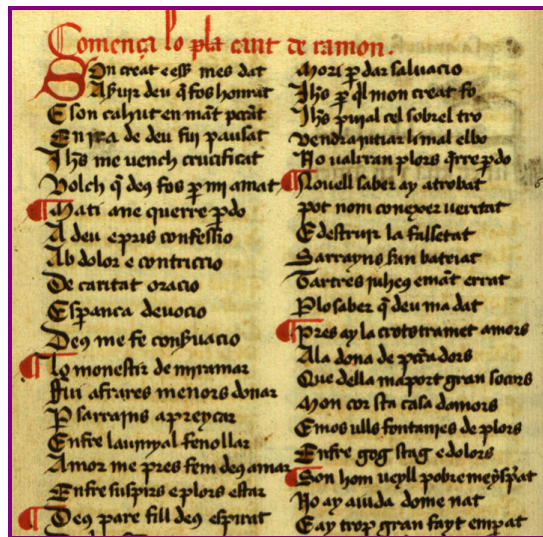 Comença lo pla cant de ramon.
Son creat e ess mes dat
A seruir deu q̃ fos honrat
E son cahut en mãt pecãt
En ira de deu fui pausat
Ihs me vench crucificat
Volch q̃ deus fos p̱ mi amat
Mati ane querre p̱do
A deu e pris confessio
Ab dolor e contriccio
De caritat oracio
Espança deuocio
Deus me fe conẞuacio
Lo monestir de miramar
Fiu a frares menors donar
P̱ sarrayns a preycar
Enfre la vinya el fenollar
Amor me pres fem deus amar
Enfre suspirs e plors estar
Deus pare fill deus espirat
Mori p̱ dar saluacio
Ihs p̱ q̃l mon creat fo
Ihs puja el cel sobrel tro
Vendra a iutiar li mal el bo
No valrran plors q̃rre p̱do
Nouell saber ay atrobat
pot nom conexer veritat
E destruir la falsetat
Sarrayns san bateiat
Tartres iuheus e mãt errat
P̱ lo saber q̃ deu ma dat
Pres ay la crots tramet amors
A la dona de pecadors
Que della maport gran socors
Mon cor sta casa damors
E mos ulls fontanes de plors
Enfre gog stag e dolors
Son hom veyll pobre meysp̱at
No ay aiuda dome nat
E ay trop gran fayt emp̱at